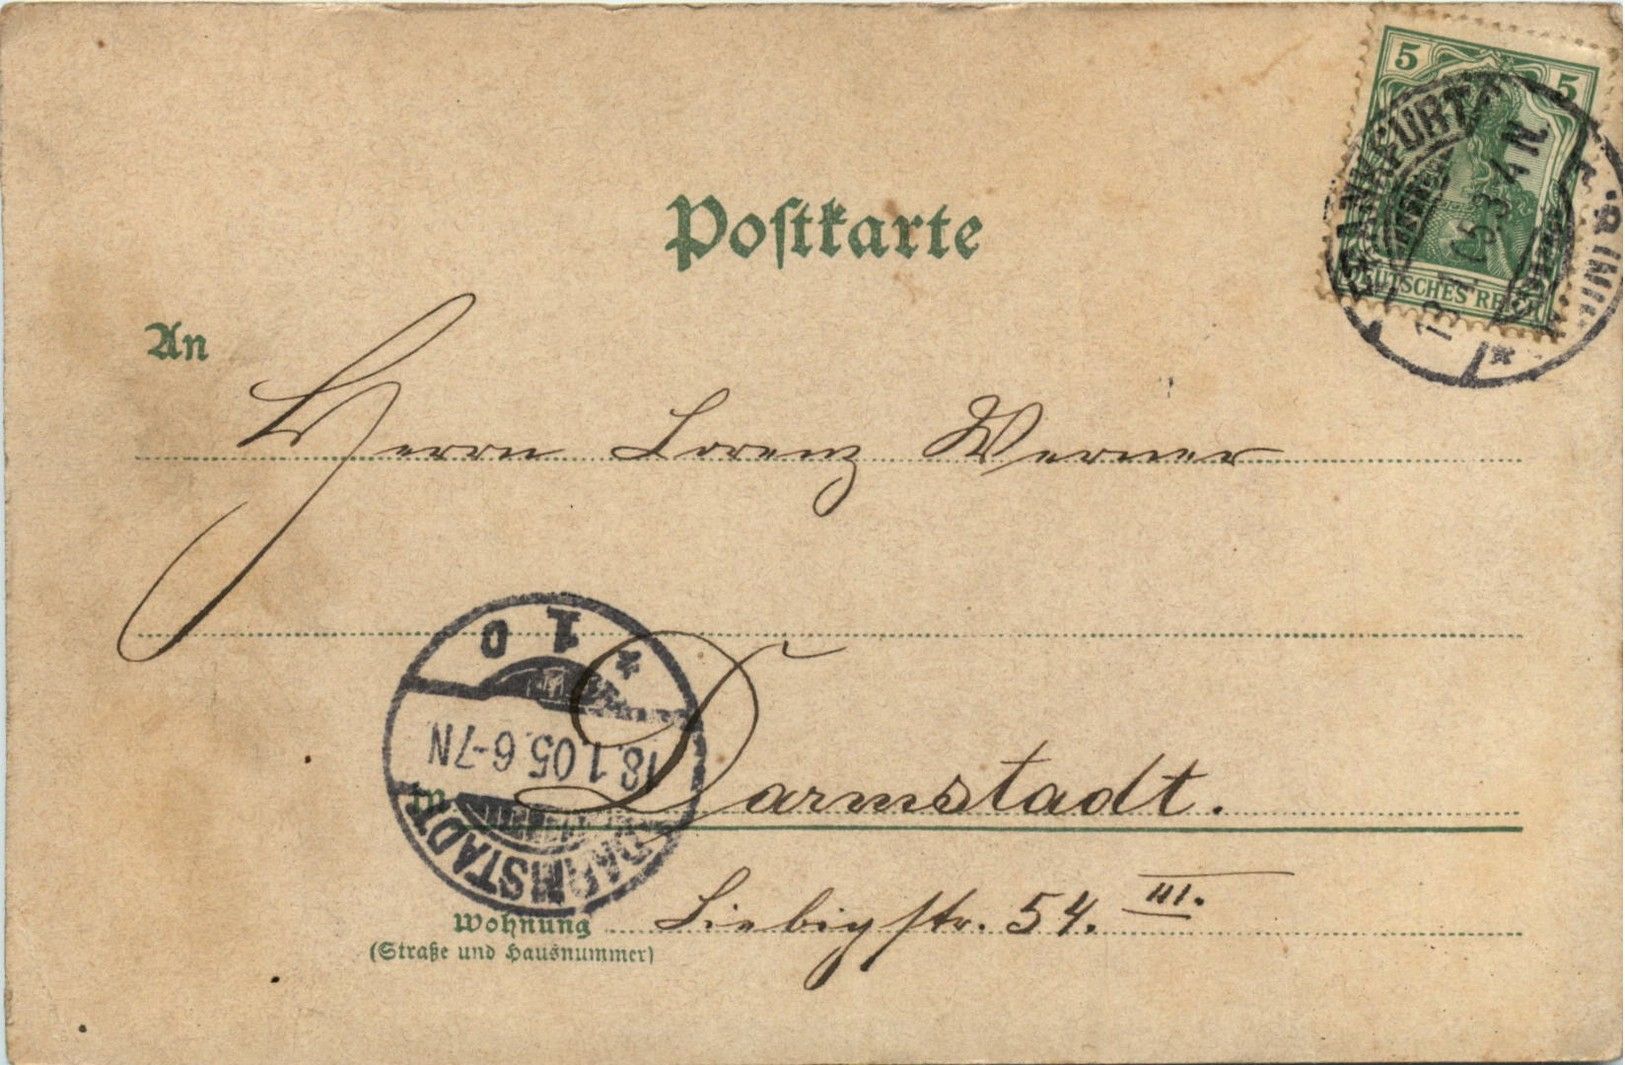 5 5
DEUTSCHES REICH
FRANKFURT
3-4 N
Postkarte
An
Herrn Lorenz Werner
* 1 D
18.1.05.6-7N
DARMSTADT
in Darmstadt.
Wohnung Liebigstr. 54. III.
(Straße und Hausnummer)